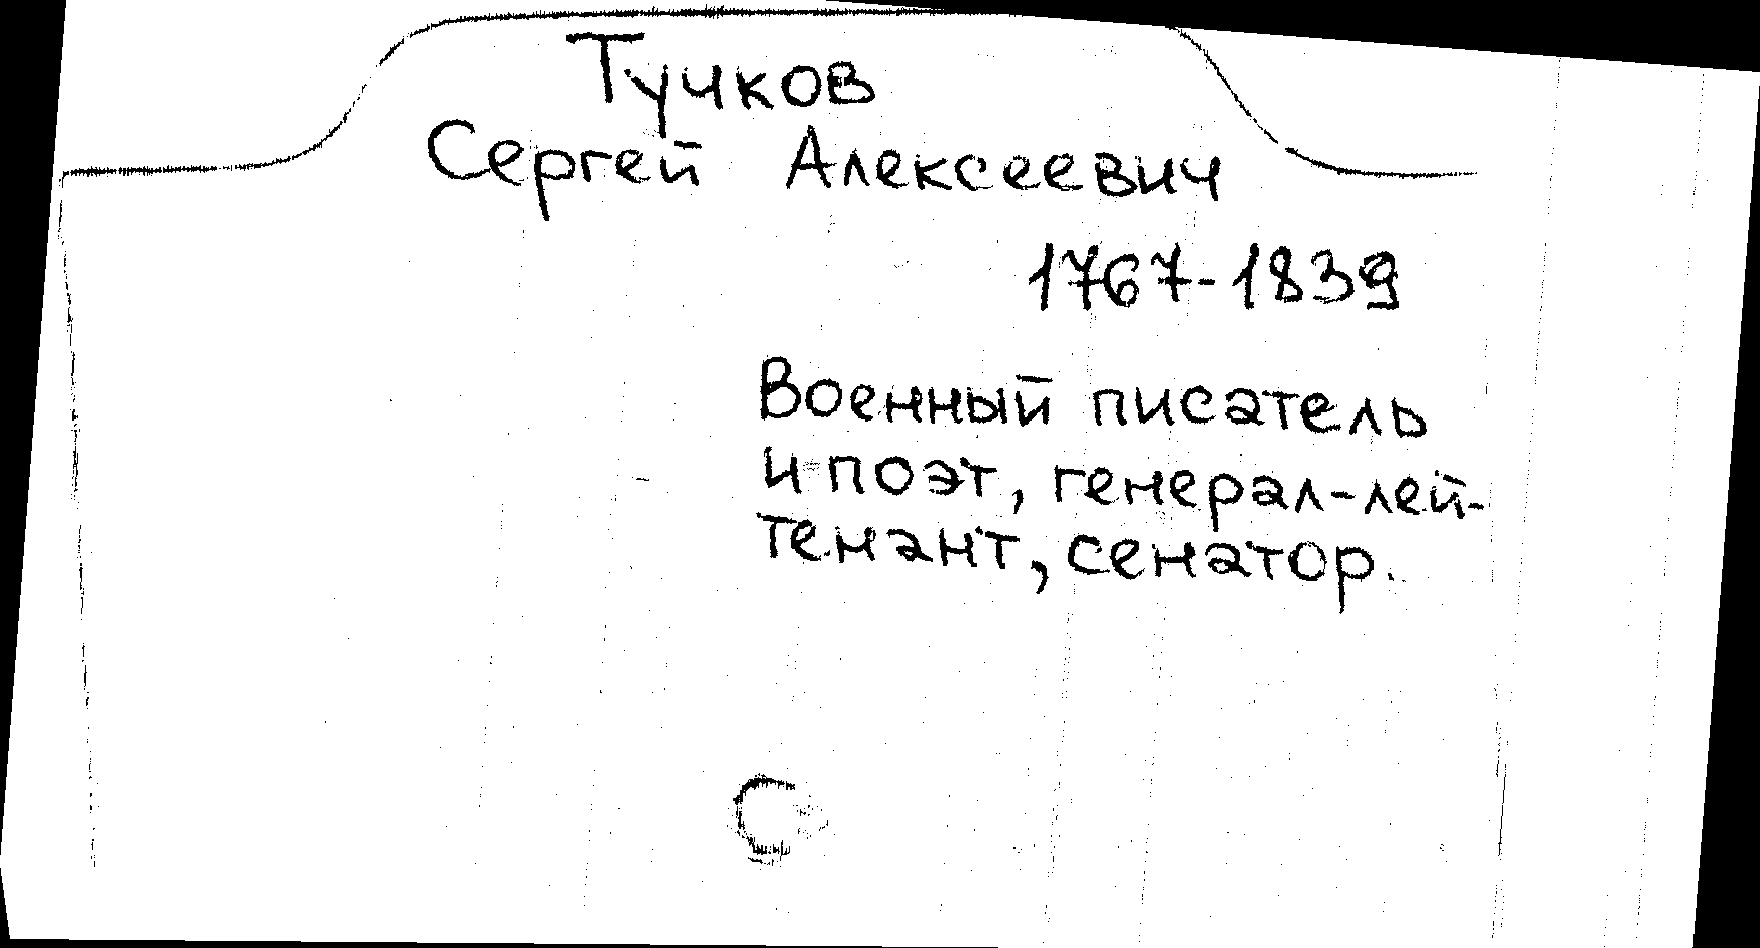 Тучков
Сергей Алексеевич
1767-1839
Военный писатель
и поэт, генерал-лей-
тенант, сенатор.